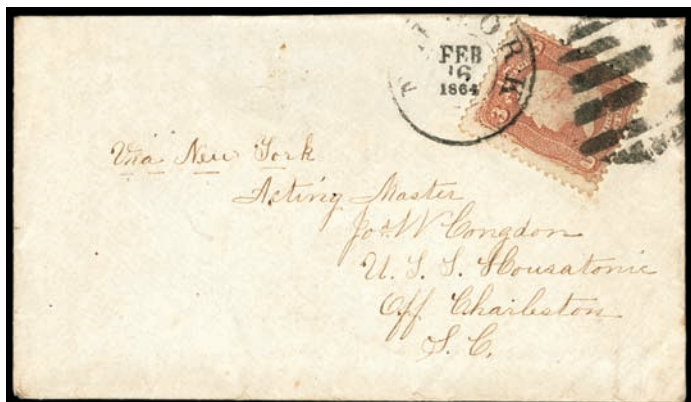 NEW YORK
FEB
16
1864
3
Via New York
Acting Master
Jos W Congdon
U. S. S. Housatonic
Off Charleston
S. C.